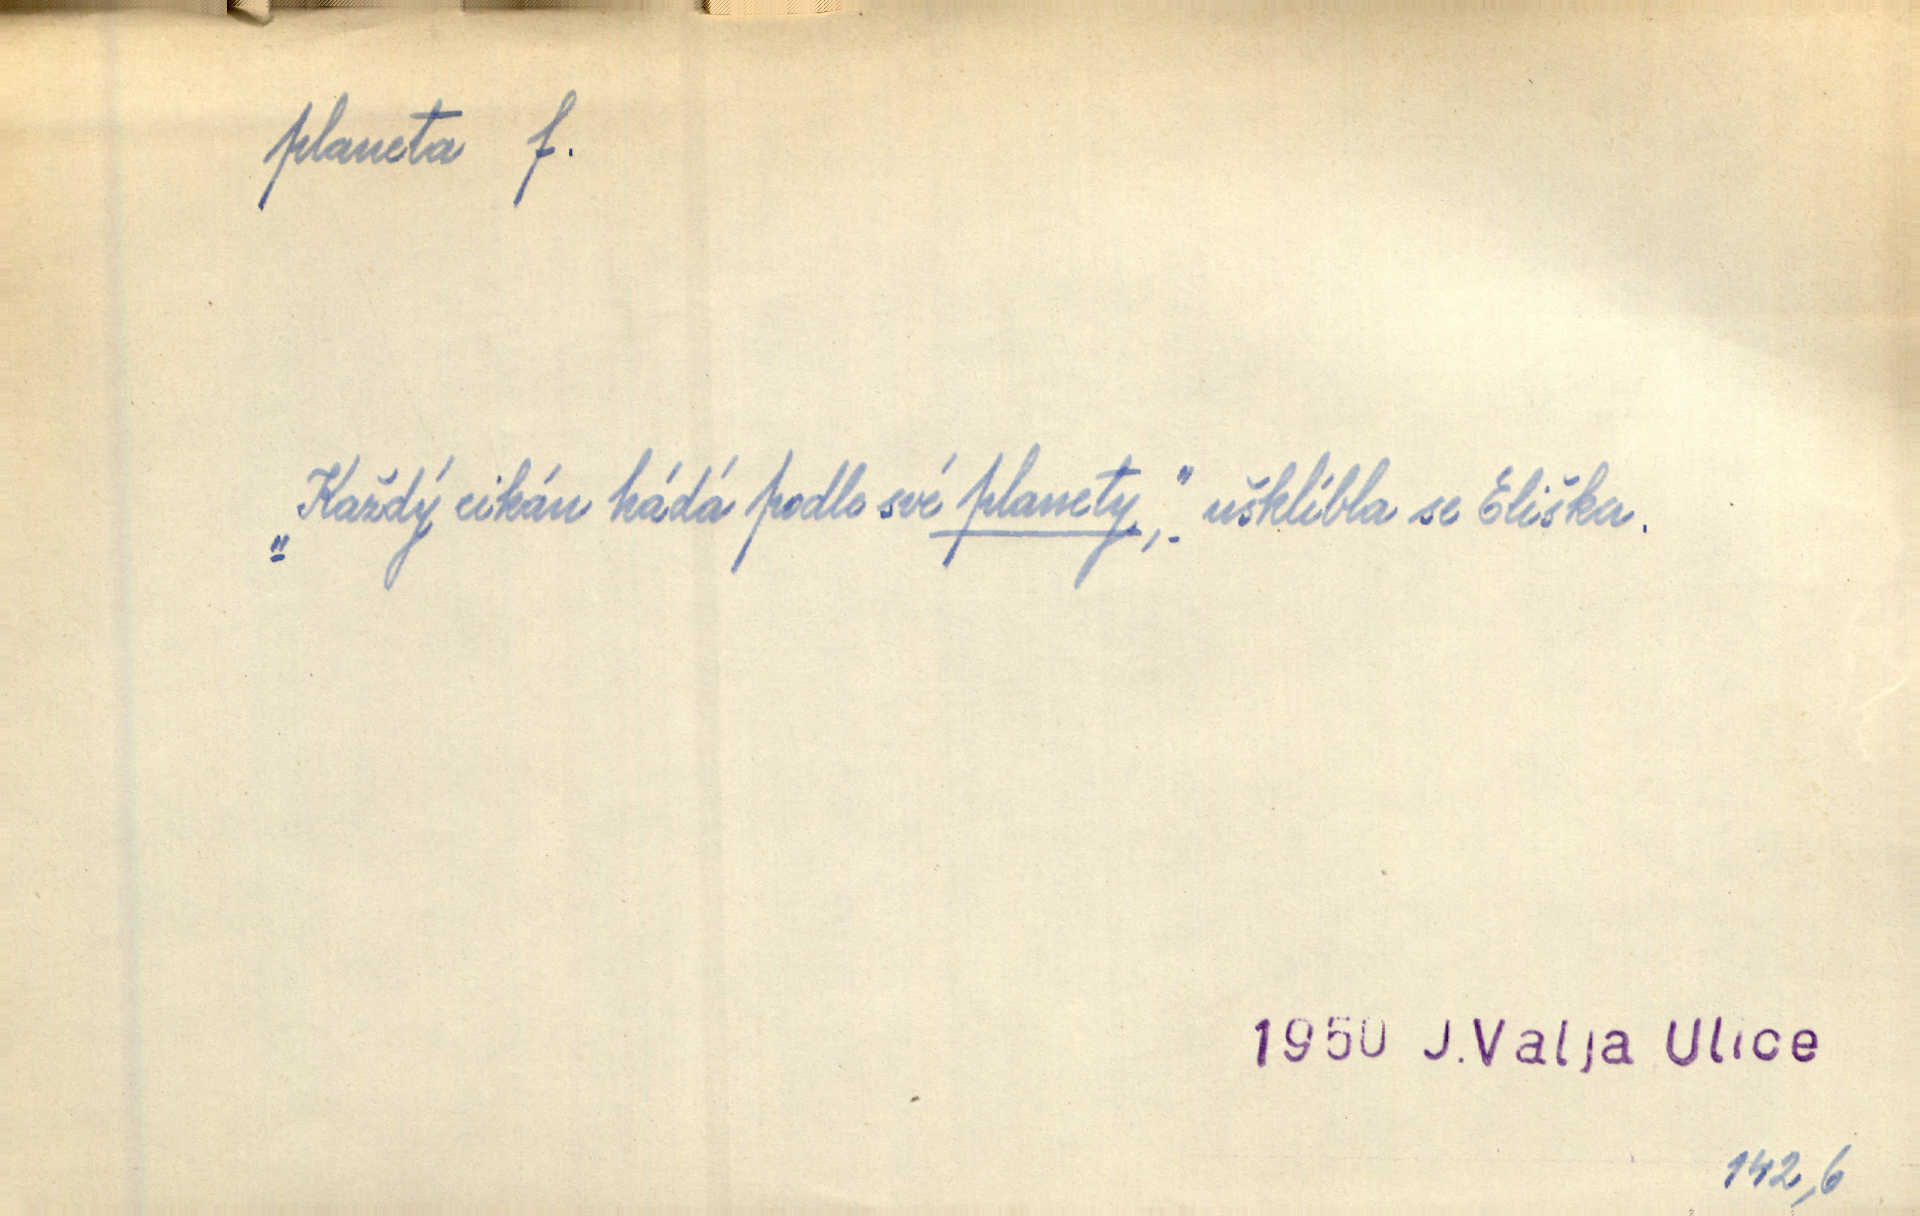 planeta f.
„Každý cikán hádá podle své planety,“ ušklíbla se Eliška.
1950 J.Valja Ulice
142,6